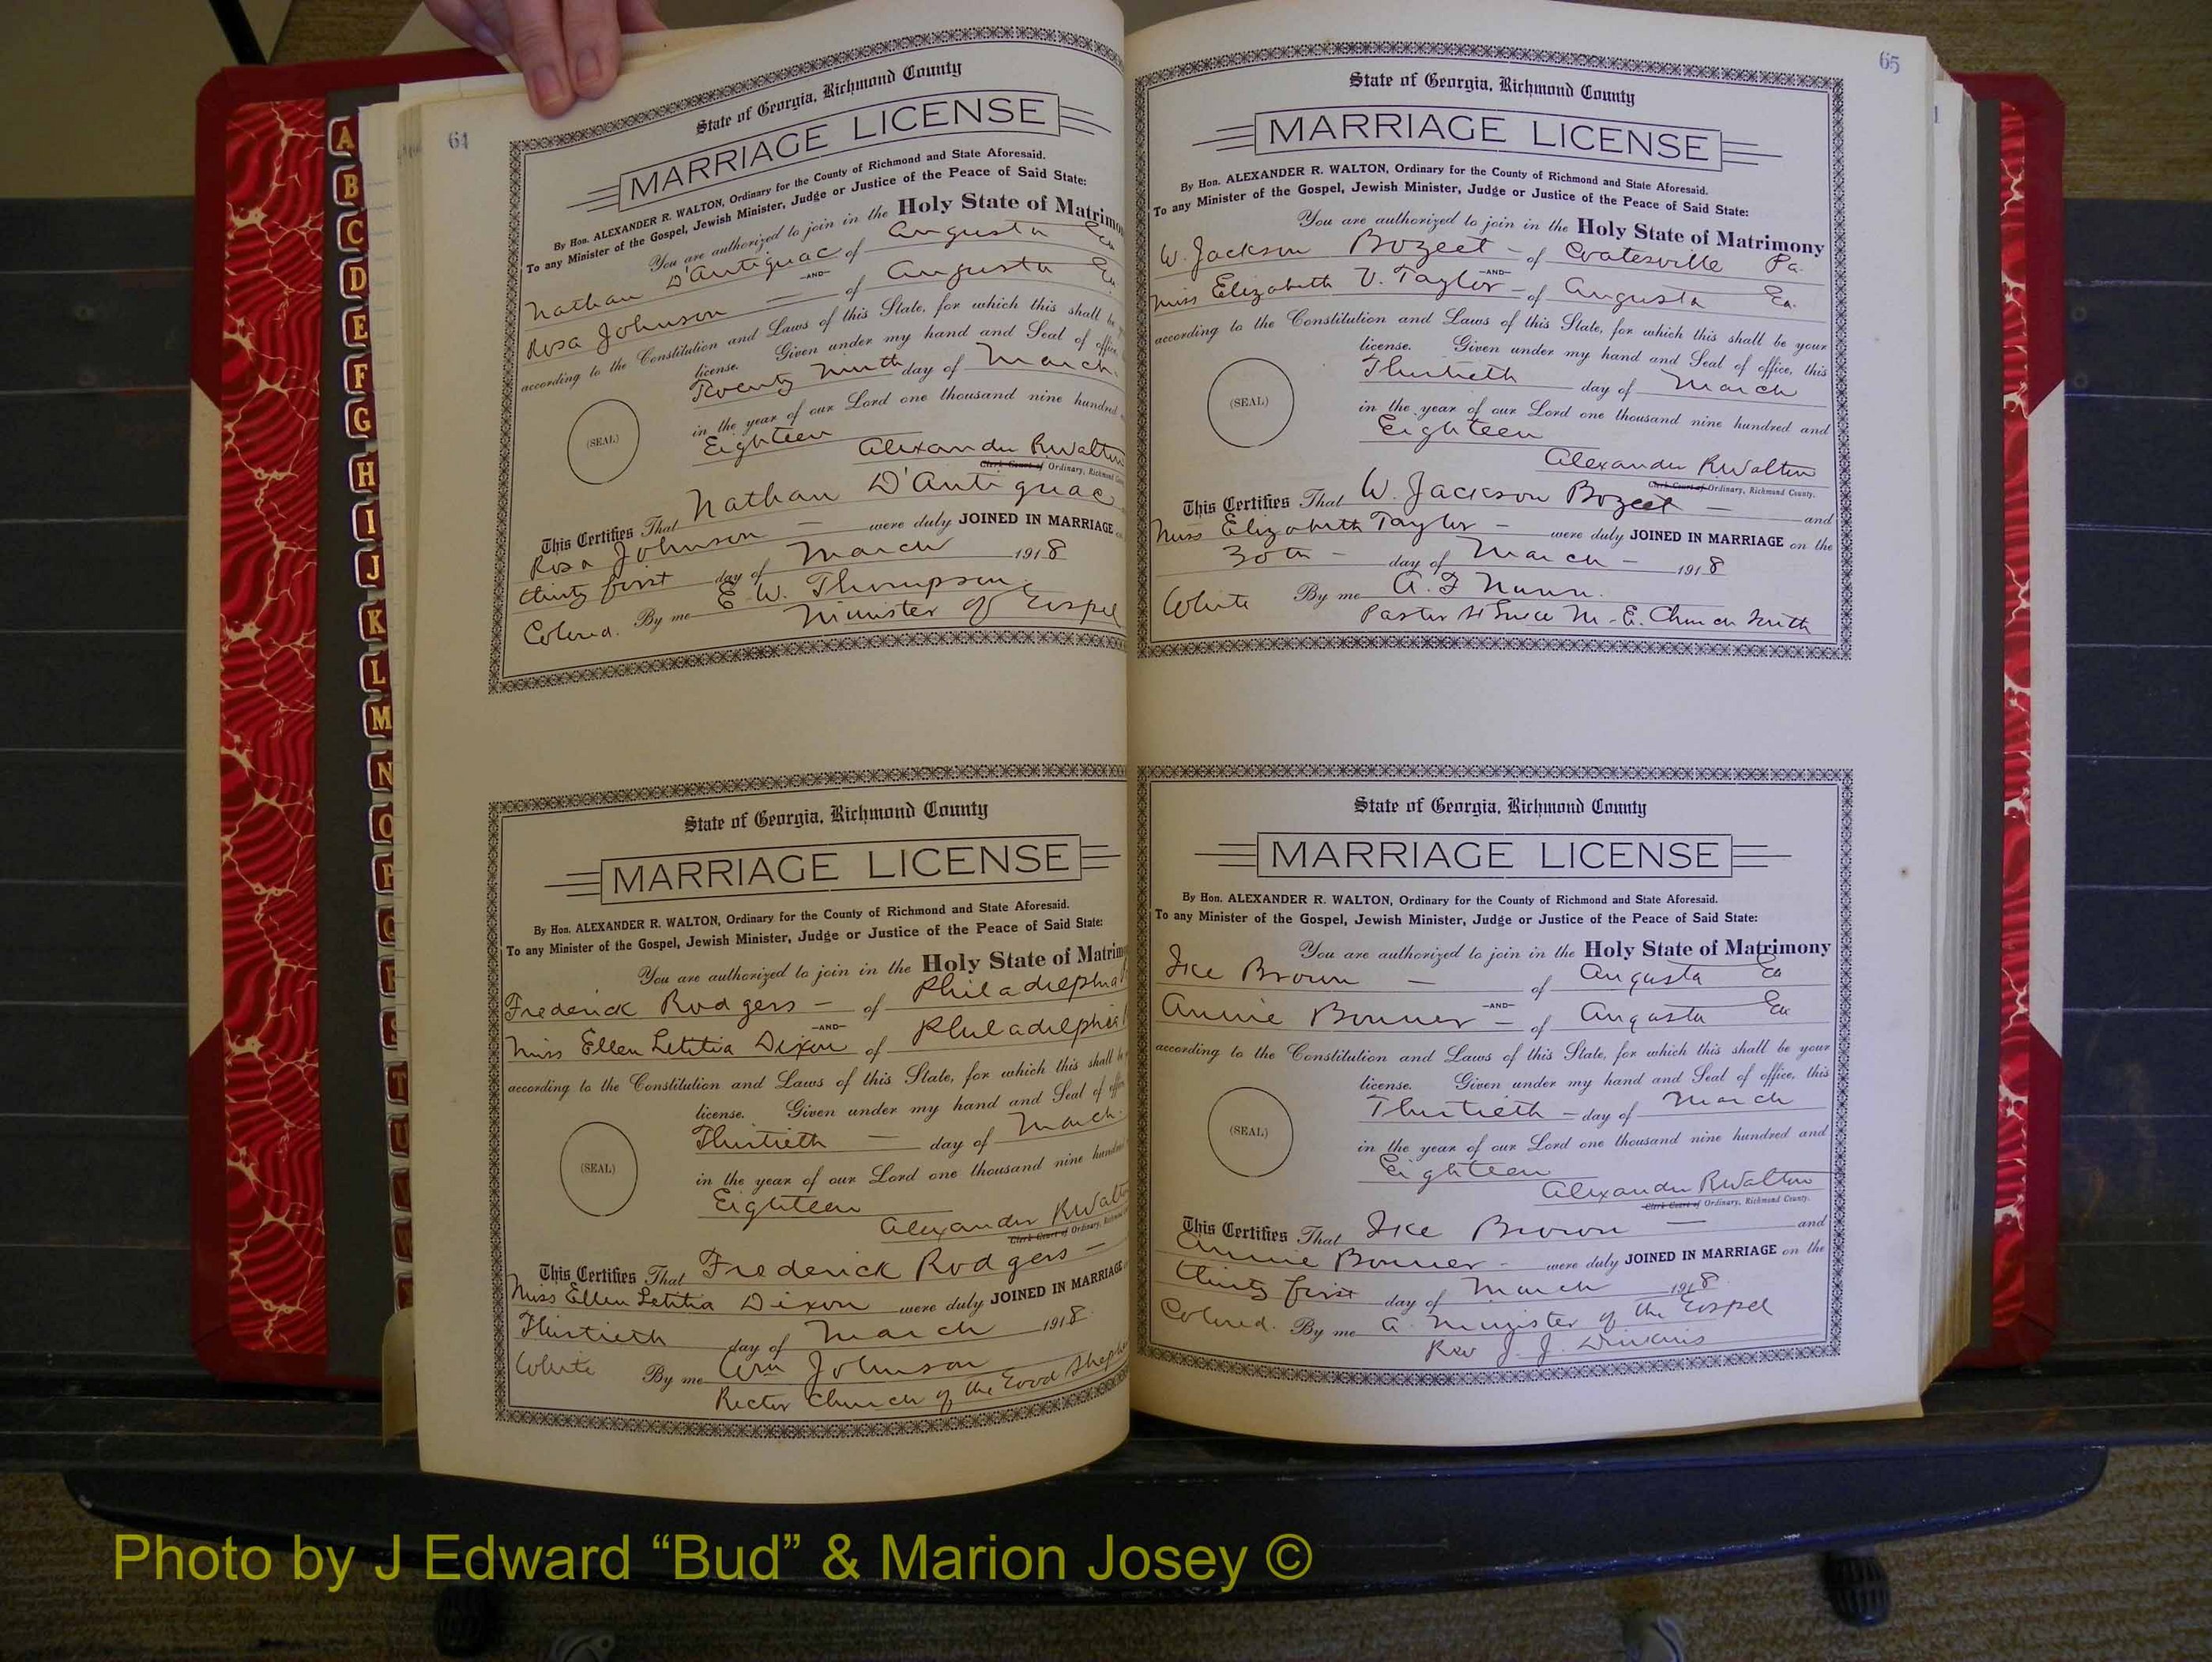 A
B
C
D
E
F
G
H
I
J
K
L
M
N
O
P
Q
R
S
T
U
V
W
64
State of Georgia, Richmond County
MARRIAGE LICENSE
By Hon. ALEXANDER R. WALTON, Ordinary for the County of Richmond and State Aforesaid.
To any Minister of the Gospel, Jewish Minister, Judge or Justice of the Peace of Said State:
You are authorized to join in the Holy State of Matrimo
Nathan D'Antignac of Augusta Ga
—AND—
Rosa Johnson — of Augusta Ga
according to the Constitution and Laws of this State, for which this shall be
license. Given under my hand and Seal of office,
Twenty Ninth day of March
(SEAL)
in the year of our Lord one thousand nine hundred
Eighteen
Alexander R Walton
Clerk Court of Ordinary, Richmond
This Certifies That Nathan D'Antignac
Rosa Johnson — were duly JOINED IN MARRIAGE
thirty first day of March 1918
Colored. By me E. W. Thompson
Minister of Gospel
State of Georgia, Richmond County
MARRIAGE LICENSE
By Hon. ALEXANDER R. WALTON, Ordinary for the County of Richmond and State Aforesaid.
To any Minister of the Gospel, Jewish Minister, Judge or Justice of the Peace of Said State:
You are authorized to join in the Holy State of Matrim
Frederick Rodgers — of Philadelphia
—AND—
Miss Ellen Letitia Dixon of Philadelphia
according to the Constitution and Laws of this State, for which this shall be
license. Given under my hand and Seal of
Thirtieth — day of March
(SEAL)
in the year of our Lord one thousand nine
Eighteen
Alexander R Walt
Clerk Court of Ordinary,
This Certifies That Frederick Rodgers —
Miss Ellen Letitia Dixon were duly JOINED IN MARRIAGE
Thirtieth day of March 1918
White By me Wm Johnson
Rector Church of the Good Sheph
65
State of Georgia, Richmond County
MARRIAGE LICENSE
By Hon. ALEXANDER R. WALTON, Ordinary for the County of Richmond and State Aforesaid.
To any Minister of the Gospel, Jewish Minister, Judge or Justice of the Peace of Said State:
You are authorized to join in the Holy State of Matrimony
W. Jackson Bozeet — of Coatesville Pa.
—AND—
Miss Elizabeth V. Taylor — of Augusta Ga.
according to the Constitution and Laws of this State, for which this shall be your
license. Given under my hand and Seal of office, this
Thirtieth day of March
(SEAL)
in the year of our Lord one thousand nine hundred and
Eighteen
Alexander R Walton
Clerk Court of Ordinary, Richmond County.
This Certifies That W. Jackson Bozeet — and
Miss Elizabeth Taylor — were duly JOINED IN MARRIAGE on the
30th — day of March — 1918
White By me A. F Nunn.
Pastor St Luke M. E. Church South
State of Georgia, Richmond County
MARRIAGE LICENSE
By Hon. ALEXANDER R. WALTON, Ordinary for the County of Richmond and State Aforesaid.
To any Minister of the Gospel, Jewish Minister, Judge or Justice of the Peace of Said State:
You are authorized to join in the Holy State of Matrimony
Ike Brown — of Augusta Ga
—AND—
Annie Bonner — of Augusta Ga
according to the Constitution and Laws of this State, for which this shall be your
license. Given under my hand and Seal of office, this
Thirtieth — day of March
(SEAL)
in the year of our Lord one thousand nine hundred and
Eighteen
Alexander R Walton
Clerk Court of Ordinary, Richmond County.
This Certifies That Ike Brown — and
Annie Bonner - were duly JOINED IN MARRIAGE on the
thirty first day of March 1918
Colored. By me A. Minister of the Gospel
Rev J. J. Dinkins
Photo by J Edward “Bud” & Marion Josey ©